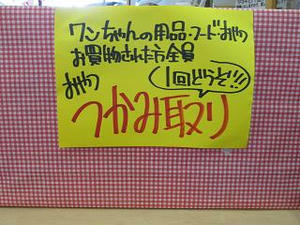 ワンちゃんの用品・フード・おやつ
お買物された方全員
おやつ
1回どうぞ!!!
つかみ取り